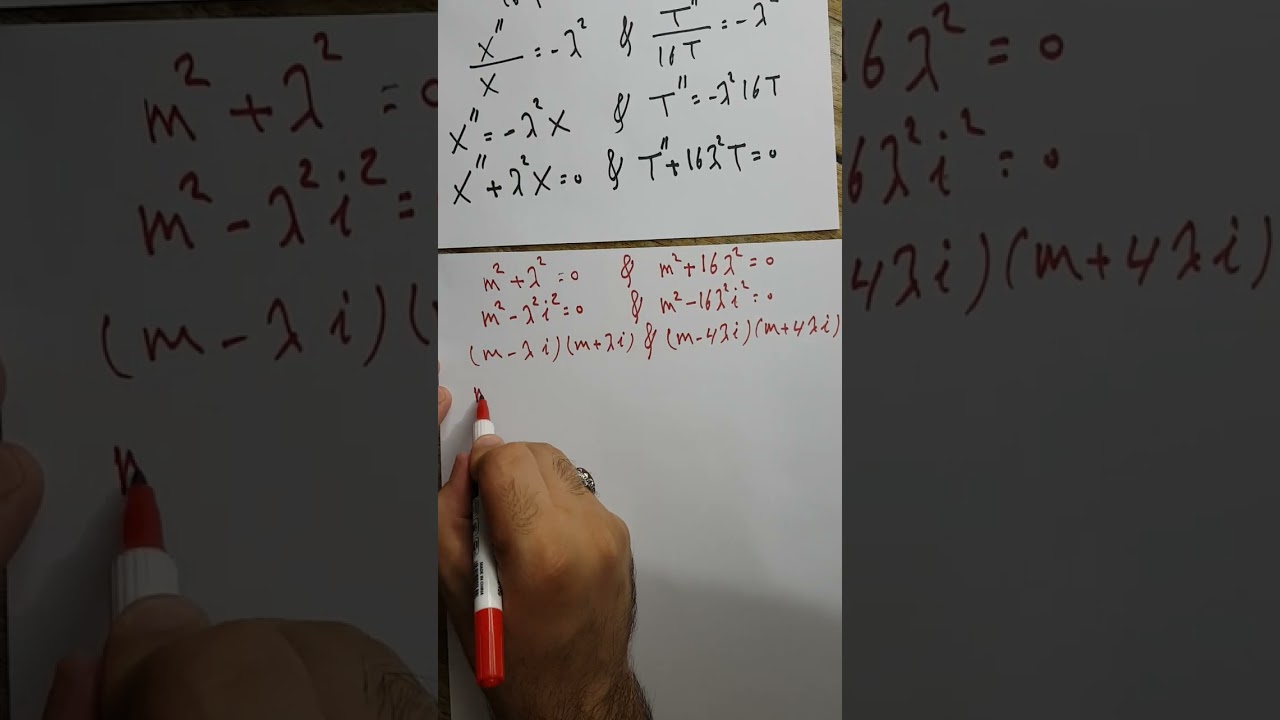 X''/X = -λ² & T''/16T = -λ
X'' = -λ²X & T'' = -λ²16T
X'' + λ²X = 0 & T'' + 16λ²T = 0
m² + λ² = 0 & m² + 16λ² = 0
m² - λ²i² = 0 & m² - 16λ²i² = 0
(m - λi)(m + λi) & (m - 4λi)(m + 4λi)